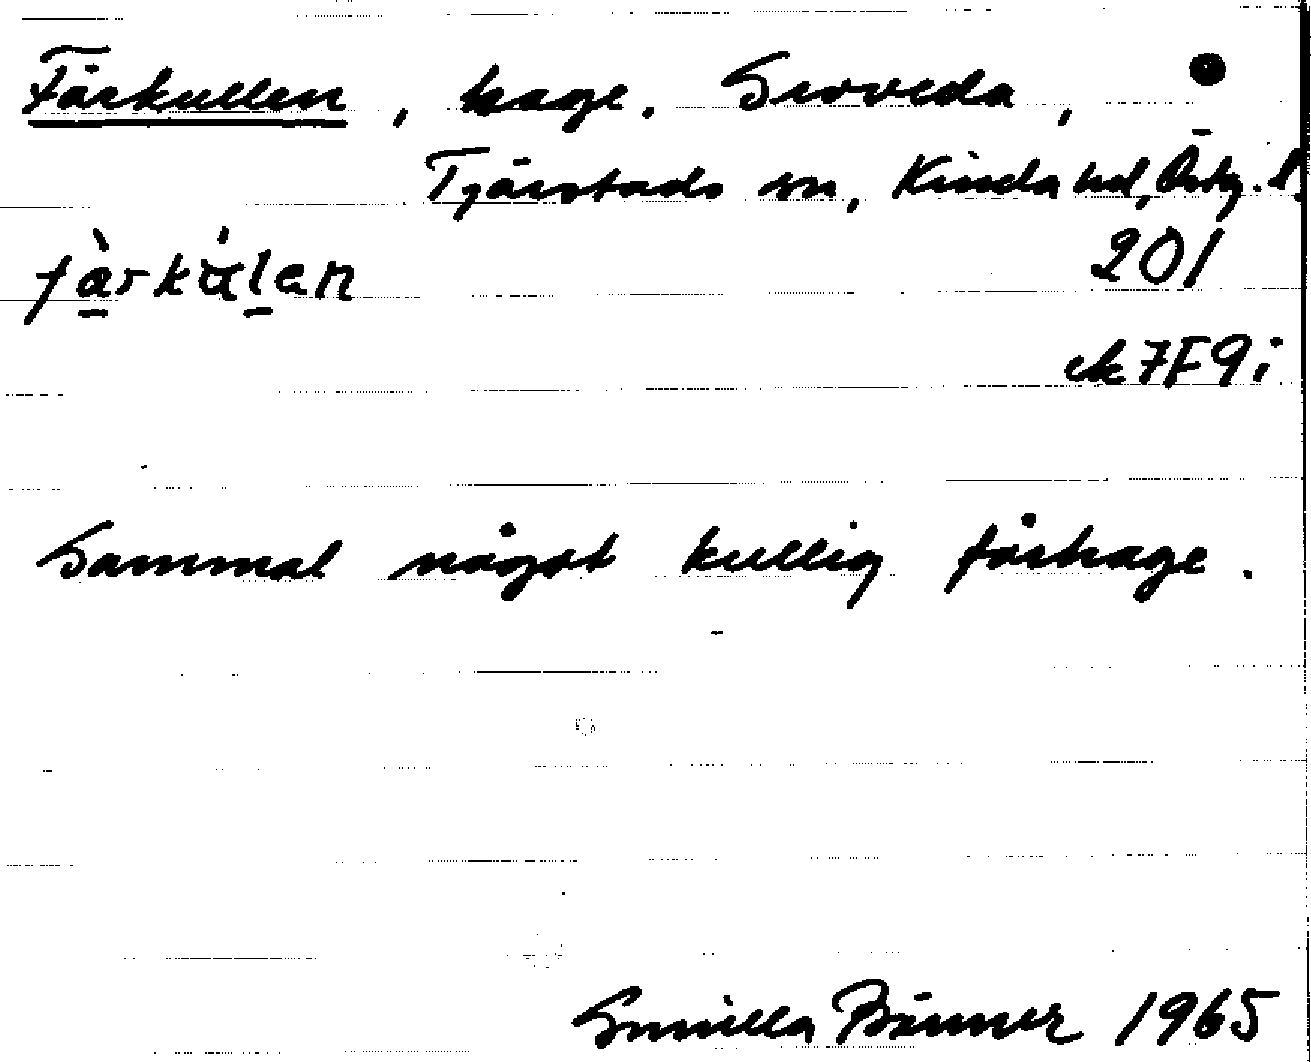 Fårkullen, hage. Groveda,
Tjärstads sn, Kinda hd, Östg. l
201
ek 7F9i
Gammal något kullig fårhage.
Gunilla Bärnner 1965